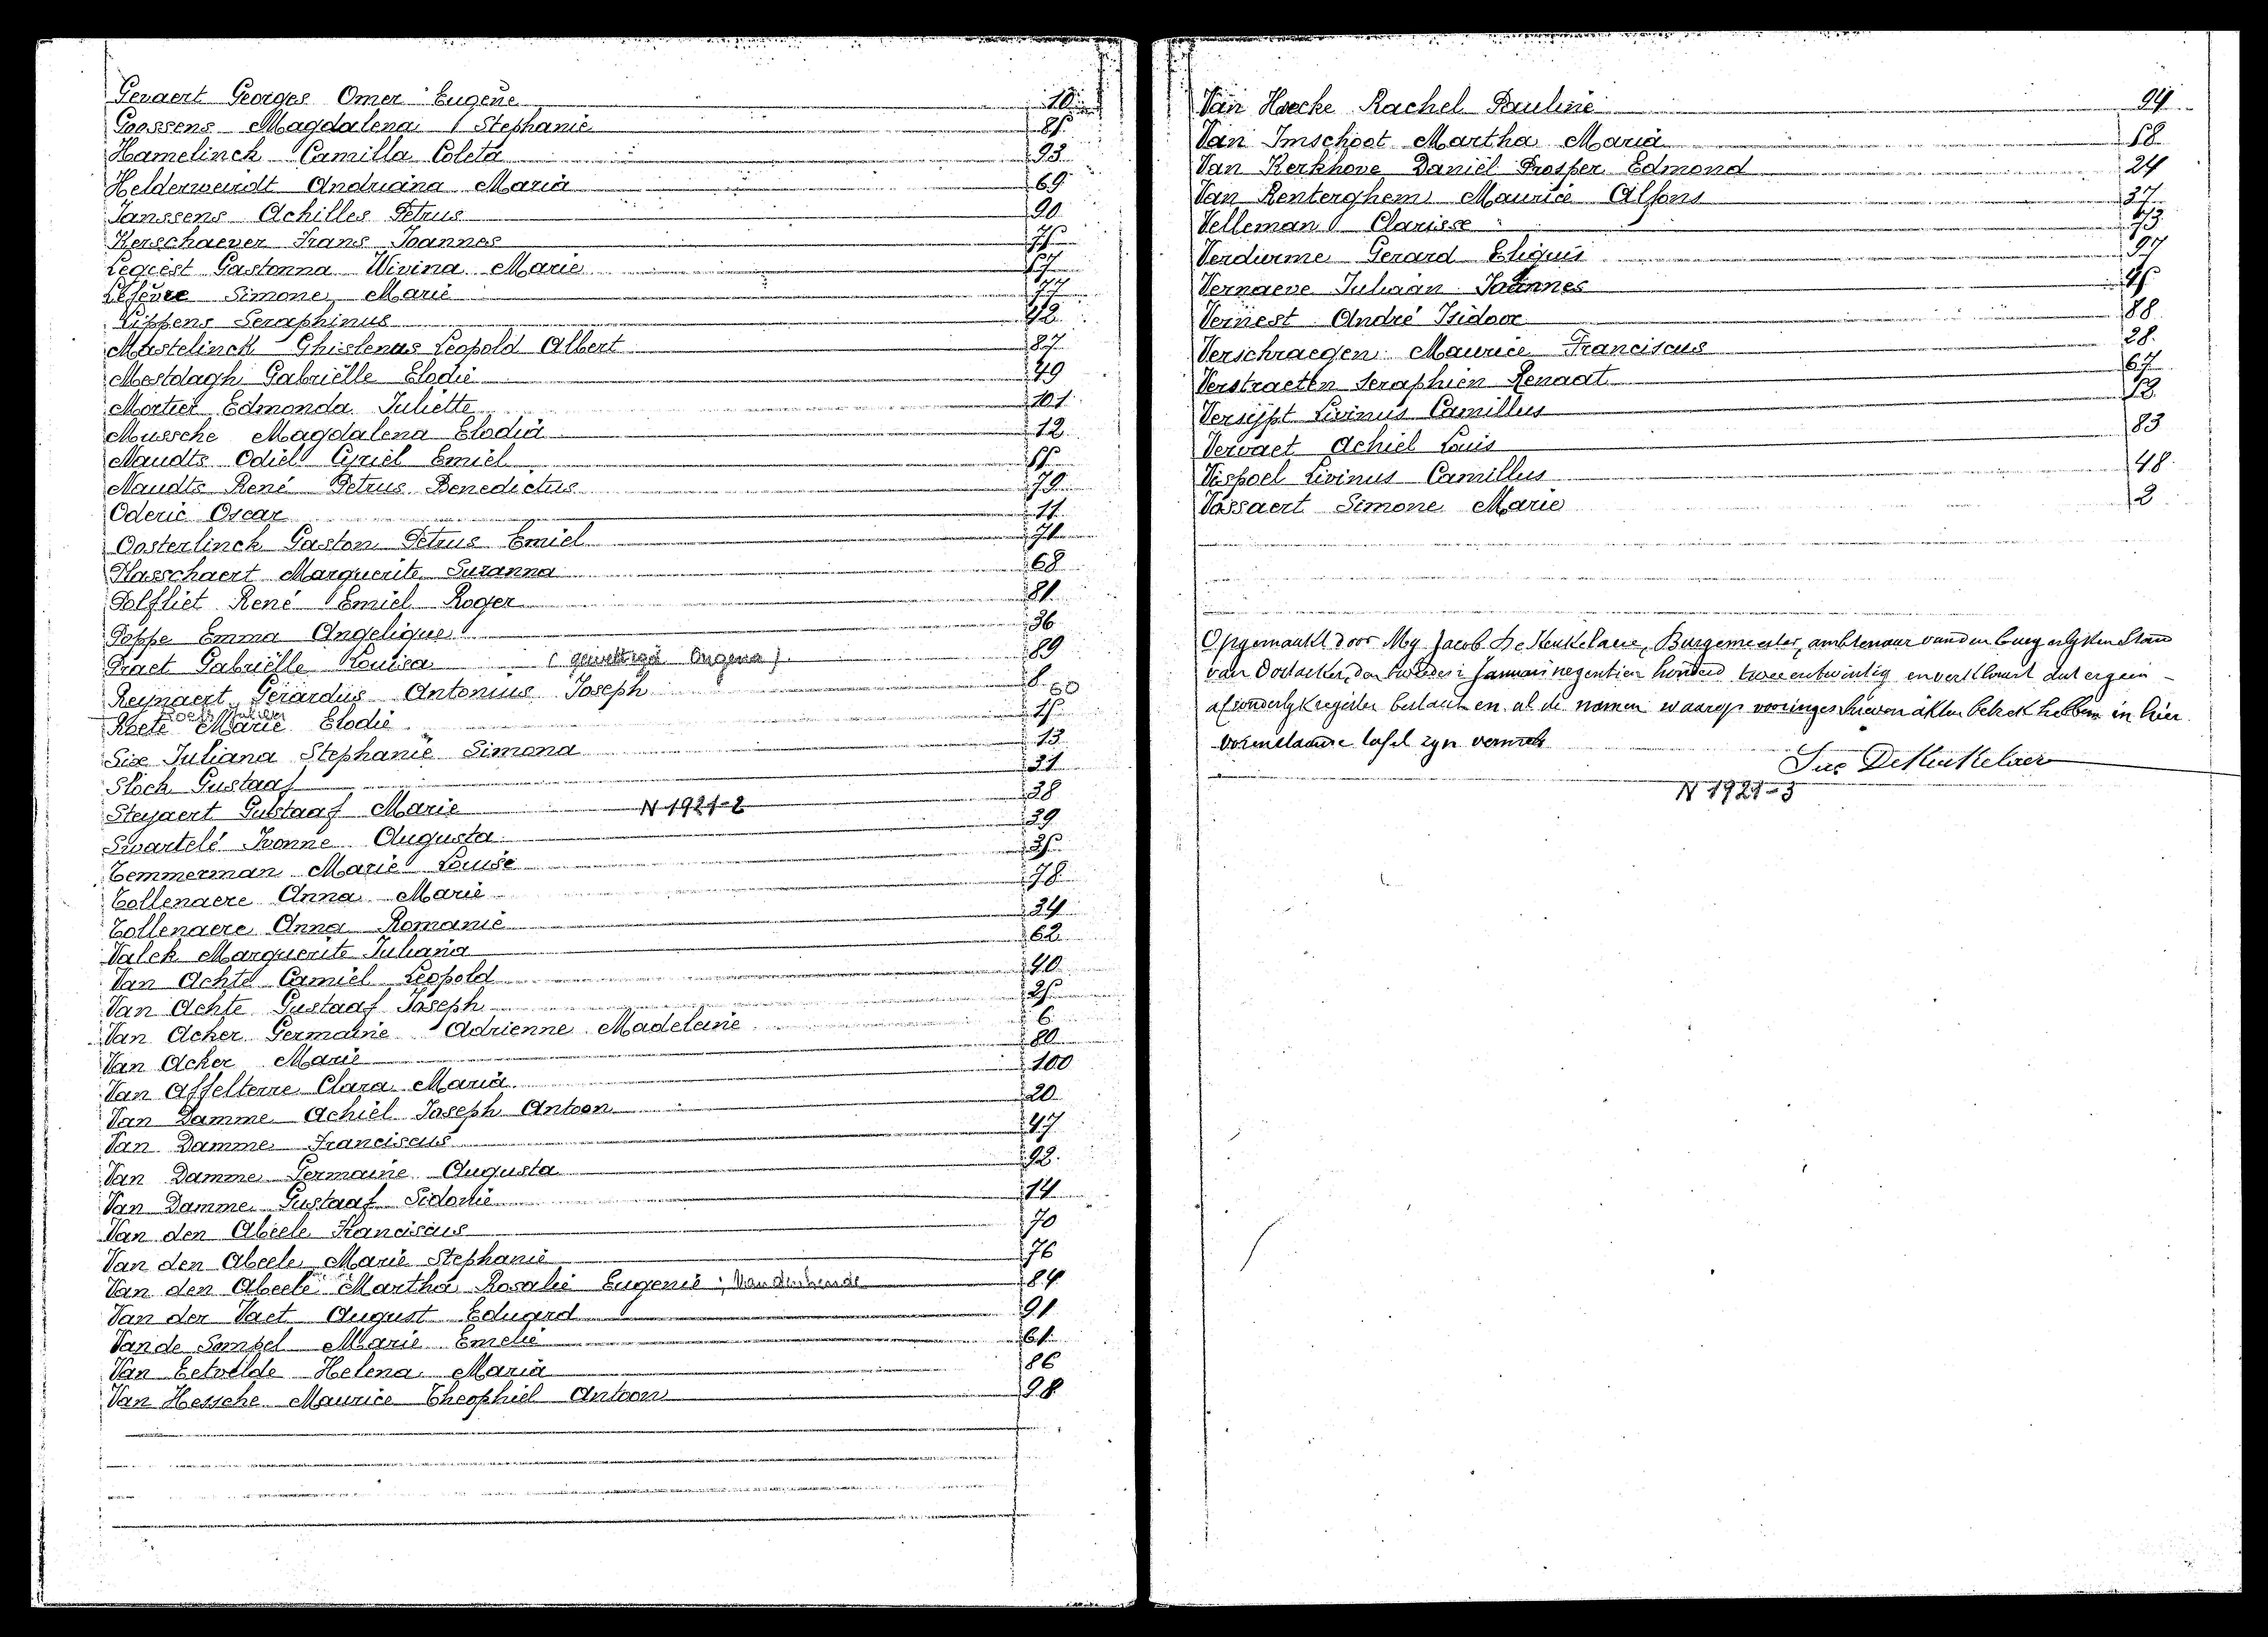 Gevaert Georges Omer Eugene 10
Goossens Magdalena Stephanie 85
Hamelinck Camilla Coleta 93
Helderweirdt Andriana Maria 69
Janssens Achilles Petrus 90
Kerschaever Frans Joannes 75
Legiest Gastonna Wivina Marie 57
Lefevre Simone Marie 77
Lippens Seraphinus 42
Mastelinck Ghislenus Leopold Albert 87
Mestdagh Gabriëlle Elodie 49
Mortier Edmonda Juliette 101
Mussche Magdalena Elodia 12
Naudts Odiel Cyriel Emiel 55
Naudts René Petrus Benedictus 79
Oderic Oscar 11
Oosterlinck Gaston Petrus Emiel 71
Plasschaert Marguerite Suzanna 68
Polfliet René Emiel Roger 81
Poppe Emma Angelique 36
Praet Gabriëlle Louisa (gewettigd Ongena) 89
Reynaert Gerardus Antonius Joseph 8
Roets Julien 60
Roete Marie Elodie 15
Six Juliana Stephanie Simona 13
Slock Gustaaf 31
Steyaert Gustaaf Marie N 1921-2 38
Swartelé Ivonne Augusta 39
Temmerman Marie Louise 35
Tollenaere Anna Marie 78
Tollenaere Anna Romanie 34
Valck Marguerite Juliana 62
Van Achte Camiel Leopold 40
Van Achte Gustaaf Joseph 25
Van Acker Germaine Adrienne Madeleine 6
Van Acker Marie 80
Van Affelterre Clara Maria 100
Van Damme Achiel Joseph Antoon 20
Van Damme Franciscus 47
Van Damme Germaine Augusta 92
Van Damme Gustaaf Sidonie 14
Van den Abeele Franciscus 70
Van den Abeele Marie Stephanie 76
Van den Abeele Martha Rosalie Eugenie, Vandenhende 84
Van der Vaet August Eduard 91
Van de Sompel Marie Emelie 61
Van Eetvelde Helena Maria 86
Van Hessche Maurice Theophiel Antoon 98
Van Hoecke Rachel Pauline 94
Van Imschoot Martha Maria 58
Van Kerkhove Daniël Prosper Edmond 24
Van Renterghem Maurice Alfons 37
Velleman Clarisse 73
Verdurme Gerard Eligius 97
Vernaeve Juliaan Joannes 45
Vernest André Isidoor 88
Verschraegen Maurice Franciscus 28
Verstraeten Seraphien Renaat 67
Versijpt Livinus Camillus 18
Vervaet Achiel Louis 83
Vispoel Livinus Camillus 48
Vossaert Simone Marie 2
Opgemaakt door My Jacob De Keukelaere, Burgemeester, ambtenaar van den burgerlyken Stand
van Oostacker, den tweeden Januari negentien honderd twee en twintig en verklaart dat er geen
afzonderlyk register bestaat en al de namen waarop voor ingeschreven akten betrek hebben in hier
voren staande tafel zyn vermeld
Jac De Keukelaere
N 1921-3